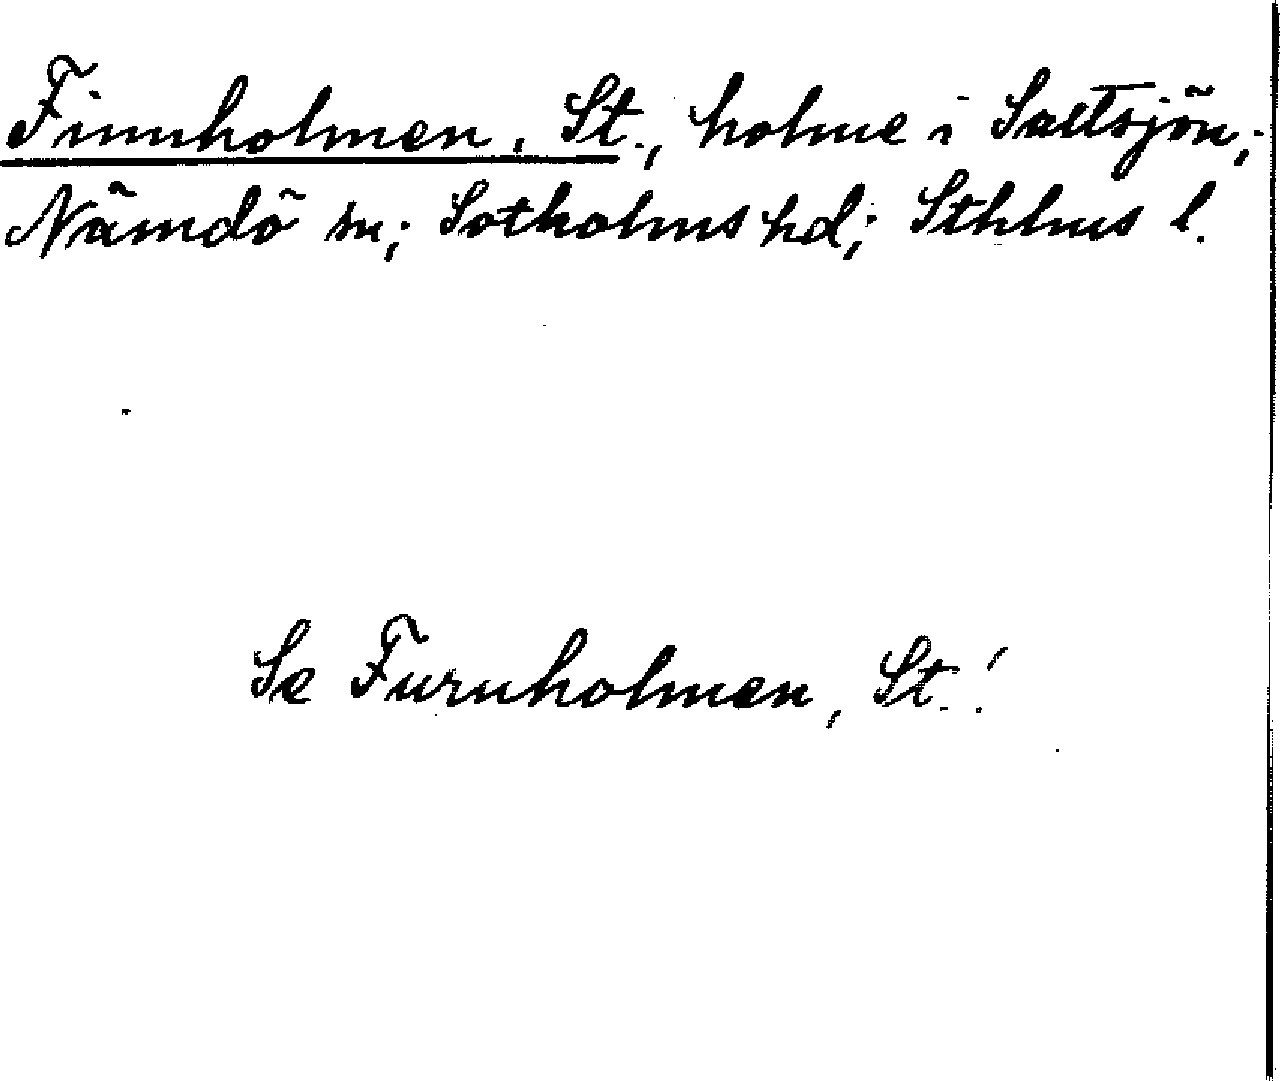 Finnholmen, St., holme i Saltsjön;
Nämdö sn; Sotholms hd; Sthlms l.
Se Furuholmen, St.!